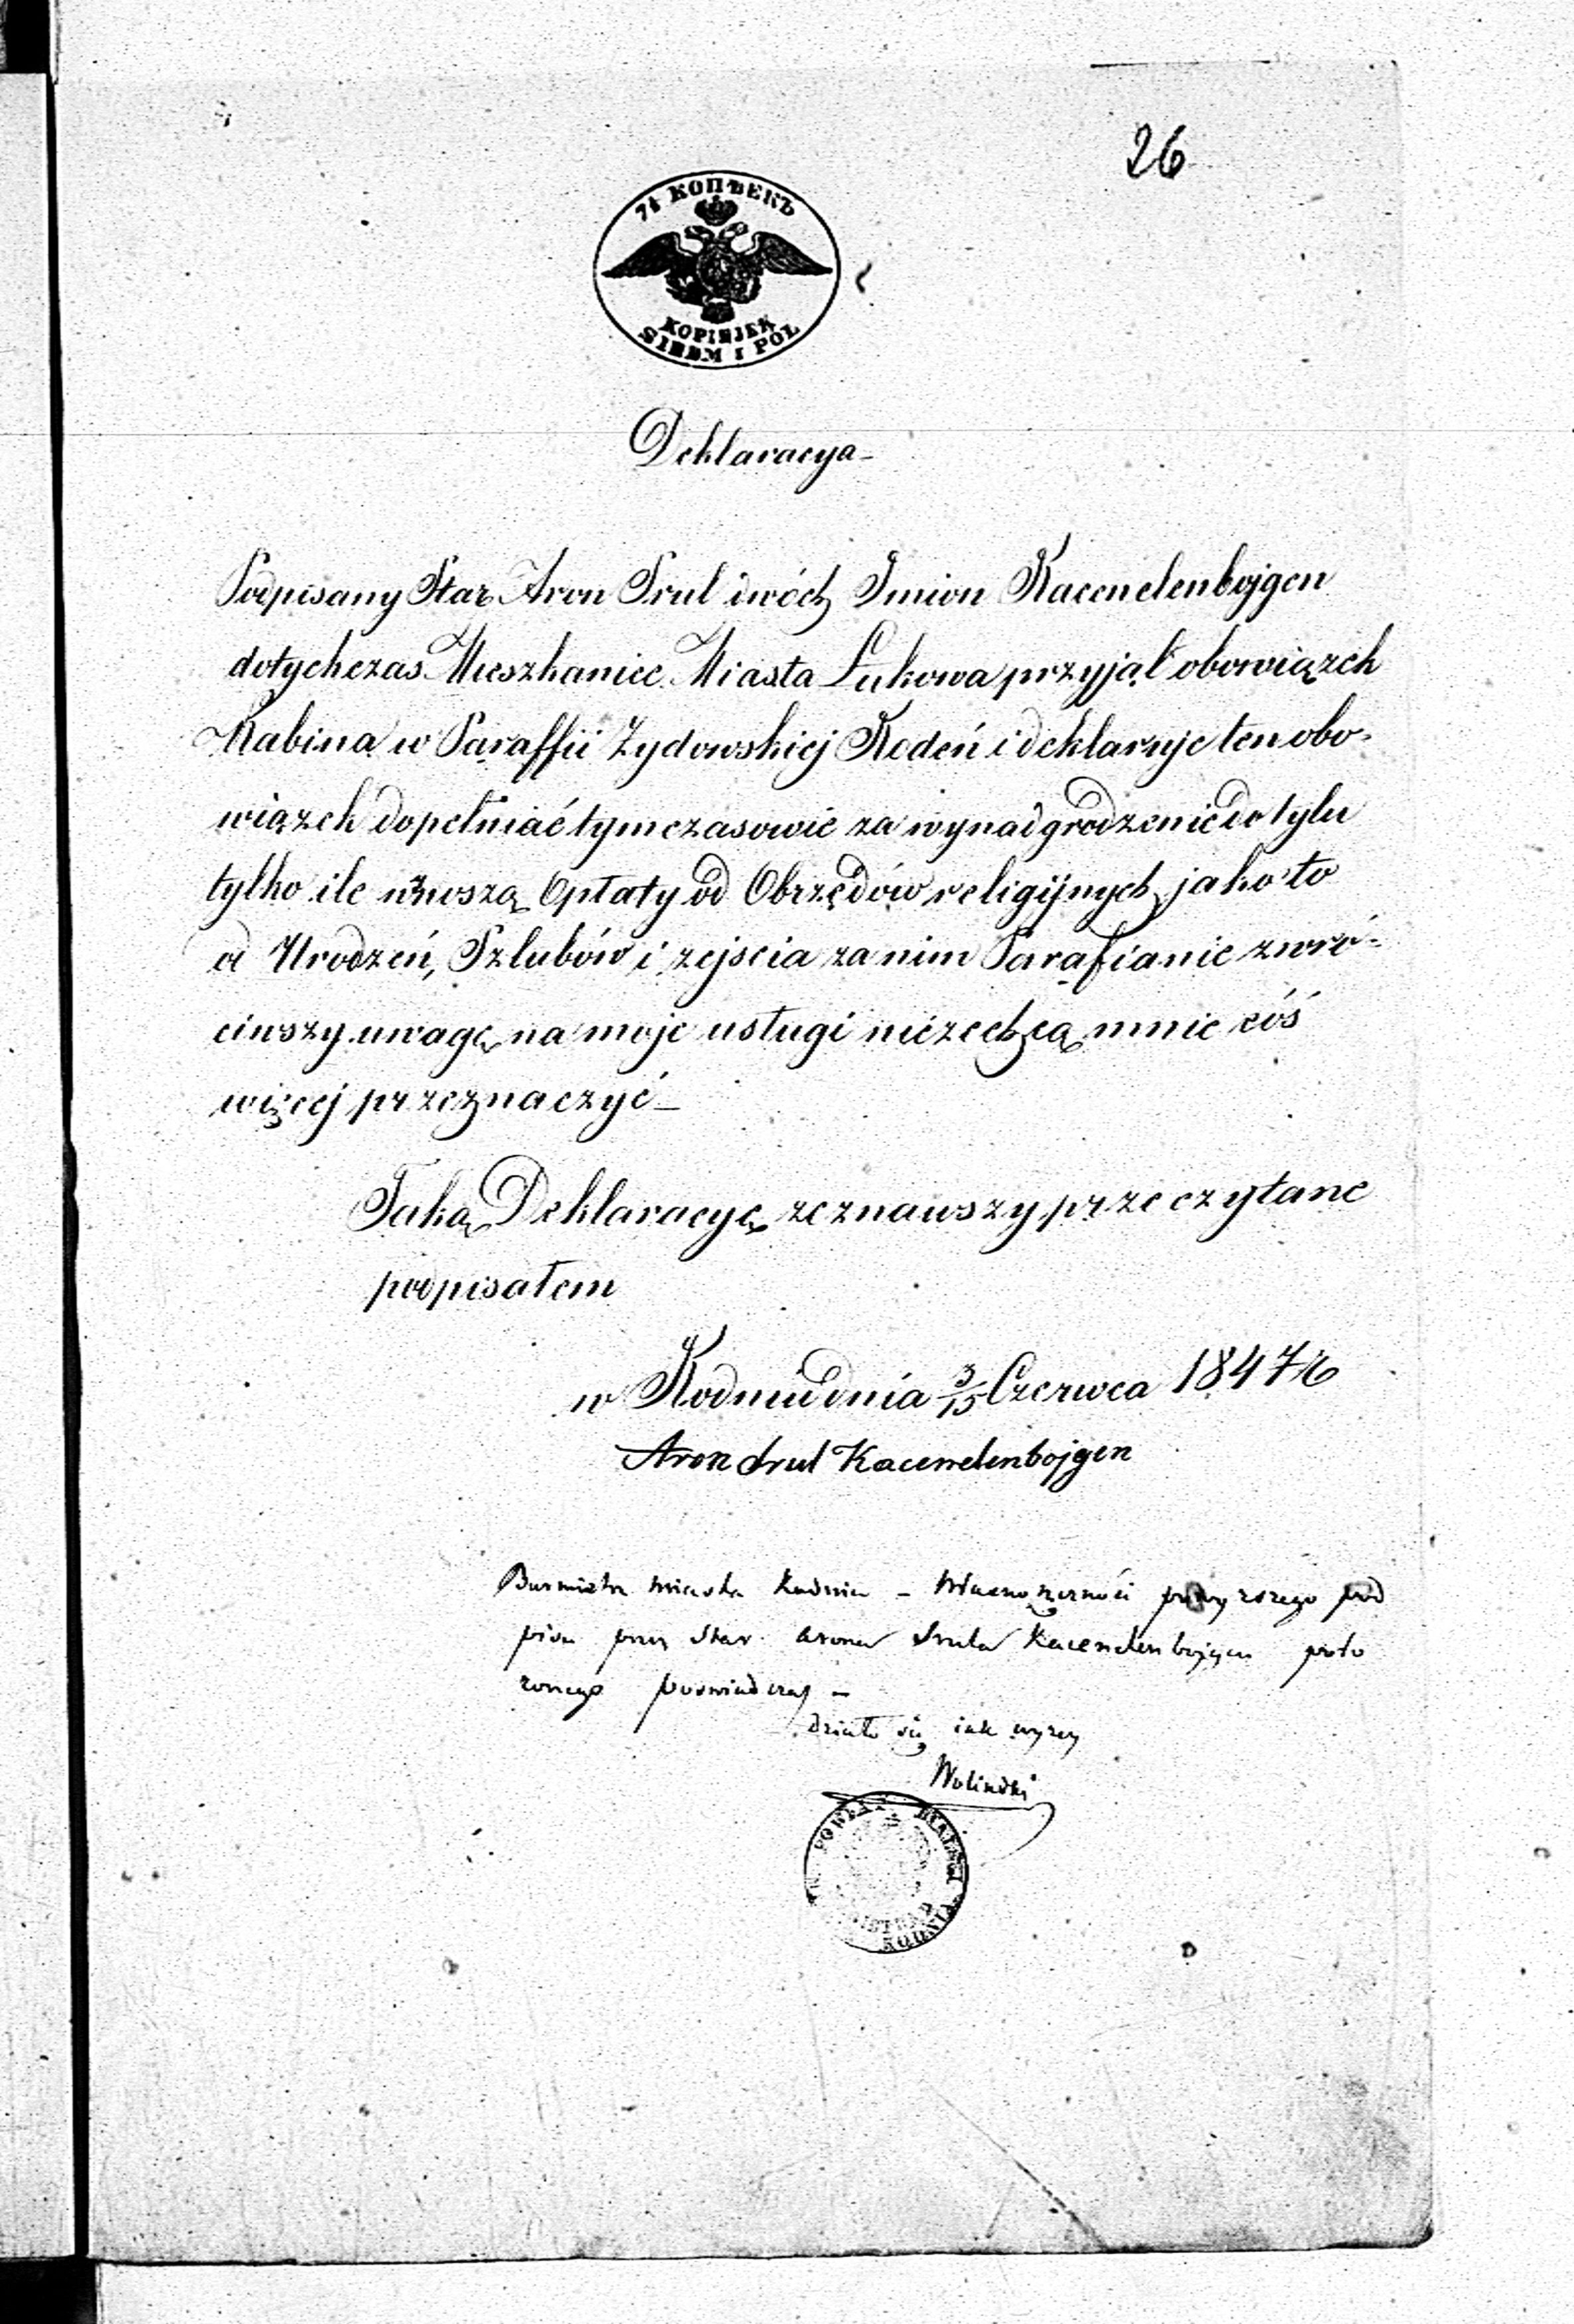 26
7½ КОПѢЕКЪ
KOPIEJEK
SIEDM I PÓŁ
Deklaracya
Podpisany Star. Aron Srul dwóch Imion Kacenelenbojgen
dotychczas Mieszkaniec Miasta Łukowa przyjął obowiązek
Rabina w Paraffii Żydowskiej Kodeń i deklaruje ten obo-
wiązek dopełniać tymczasowie za wynadgrodzenie do tylu
tylko ile wnoszą Opłaty od Obrzędów religijnych jako to
od Urodzeń, Szlubów i zejscia zanim Parafianie zwró-
ciwszy uwagę na moje usługi niezechcą mnie cóś
więcej przeznaczyć
Taką Deklaracyę zeznawszy przeczytane
podpisałem
w Kodniu dnia 3/15 Czerwca 1847 r
Aron Srul Kacenelenbojgen
Burmistrz Miasta Kodnia – Własnoręczności powyzszego pod
pisu przez Star. Arona Srula Kacenelenbojgen poło
zonego poswiadczaj –
działo się iak wyzey
Wolinski
POWIAT BIALSKI
KODNIA